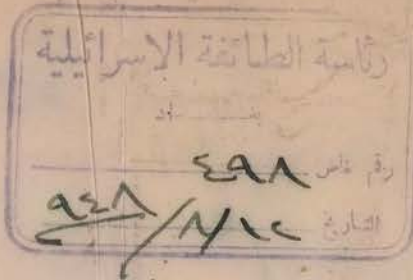 رئاسة الطائفة الاسرائيلية
بغـــداد
رقم خاص ٤٩٨
التاريخ ١٢/٨/٩٤٨